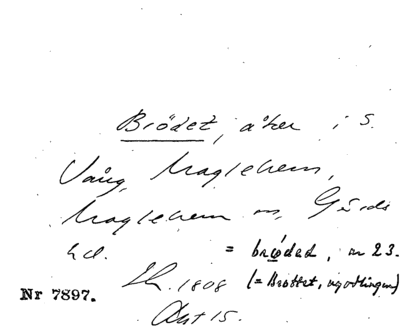 Brödet, åker i S.
Vång, Maglehem,
Maglehem sn, Gärds
hd. = brødet, nr 23.
Sk. 1808 (= Brottet, nyodlingen)
Akt 15.
Nr 7897.